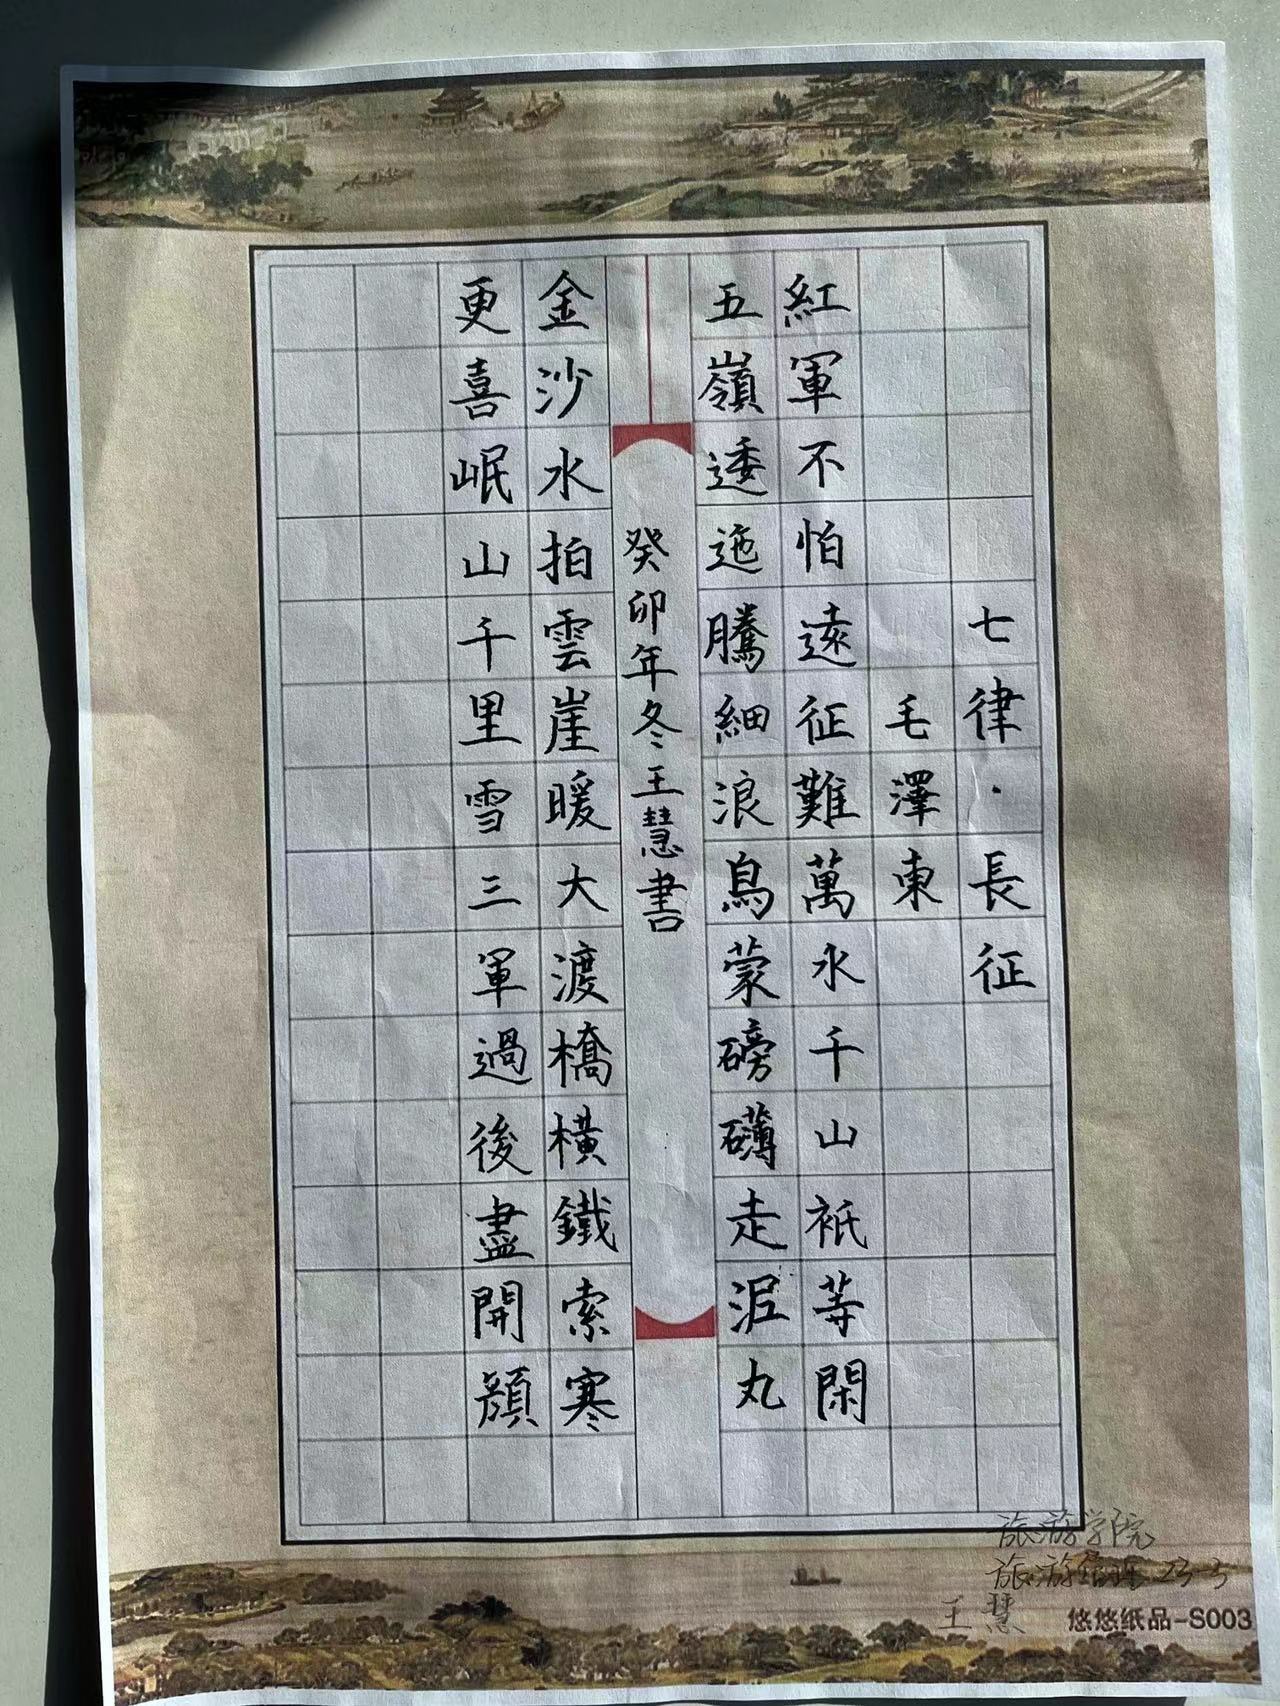 七律·長征
毛澤東
紅軍不怕遠征難萬水千山衹等閑
五嶺逶迤騰細浪烏蒙磅礴走泥丸
癸卯年冬王慧書
金沙水拍雲崖暖大渡橋橫鐵索寒
更喜岷山千里雪三軍過後盡開顔
旅游学院
旅游管理23-3
王慧
悠悠纸品-S003